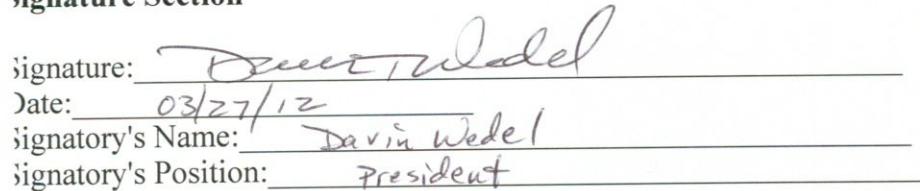 Signature Section
Signature: Davin Wedel
Date: 03/27/12
Signatory's Name: Davin Wedel
Signatory's Position: President